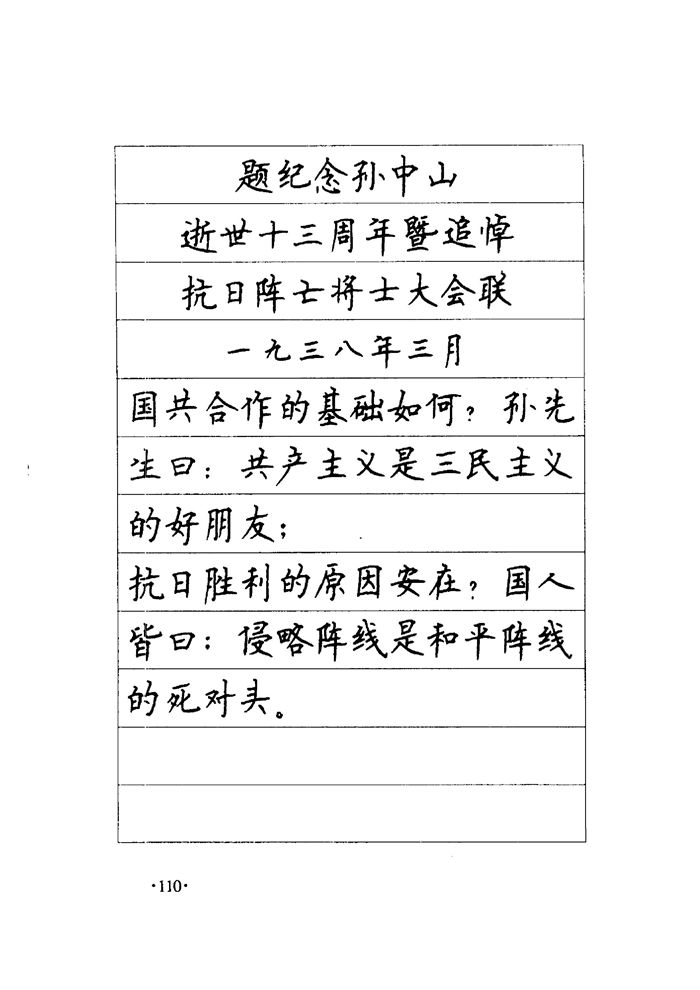 题纪念孙中山
逝世十三周年暨追悼
抗日阵亡将士大会联
一九三八年三月
国共合作的基础如何？孙先
生曰：共产主义是三民主义
的好朋友；
抗日胜利的原因安在？国人
皆曰：侵略阵线是和平阵线
的死对头。
·110·